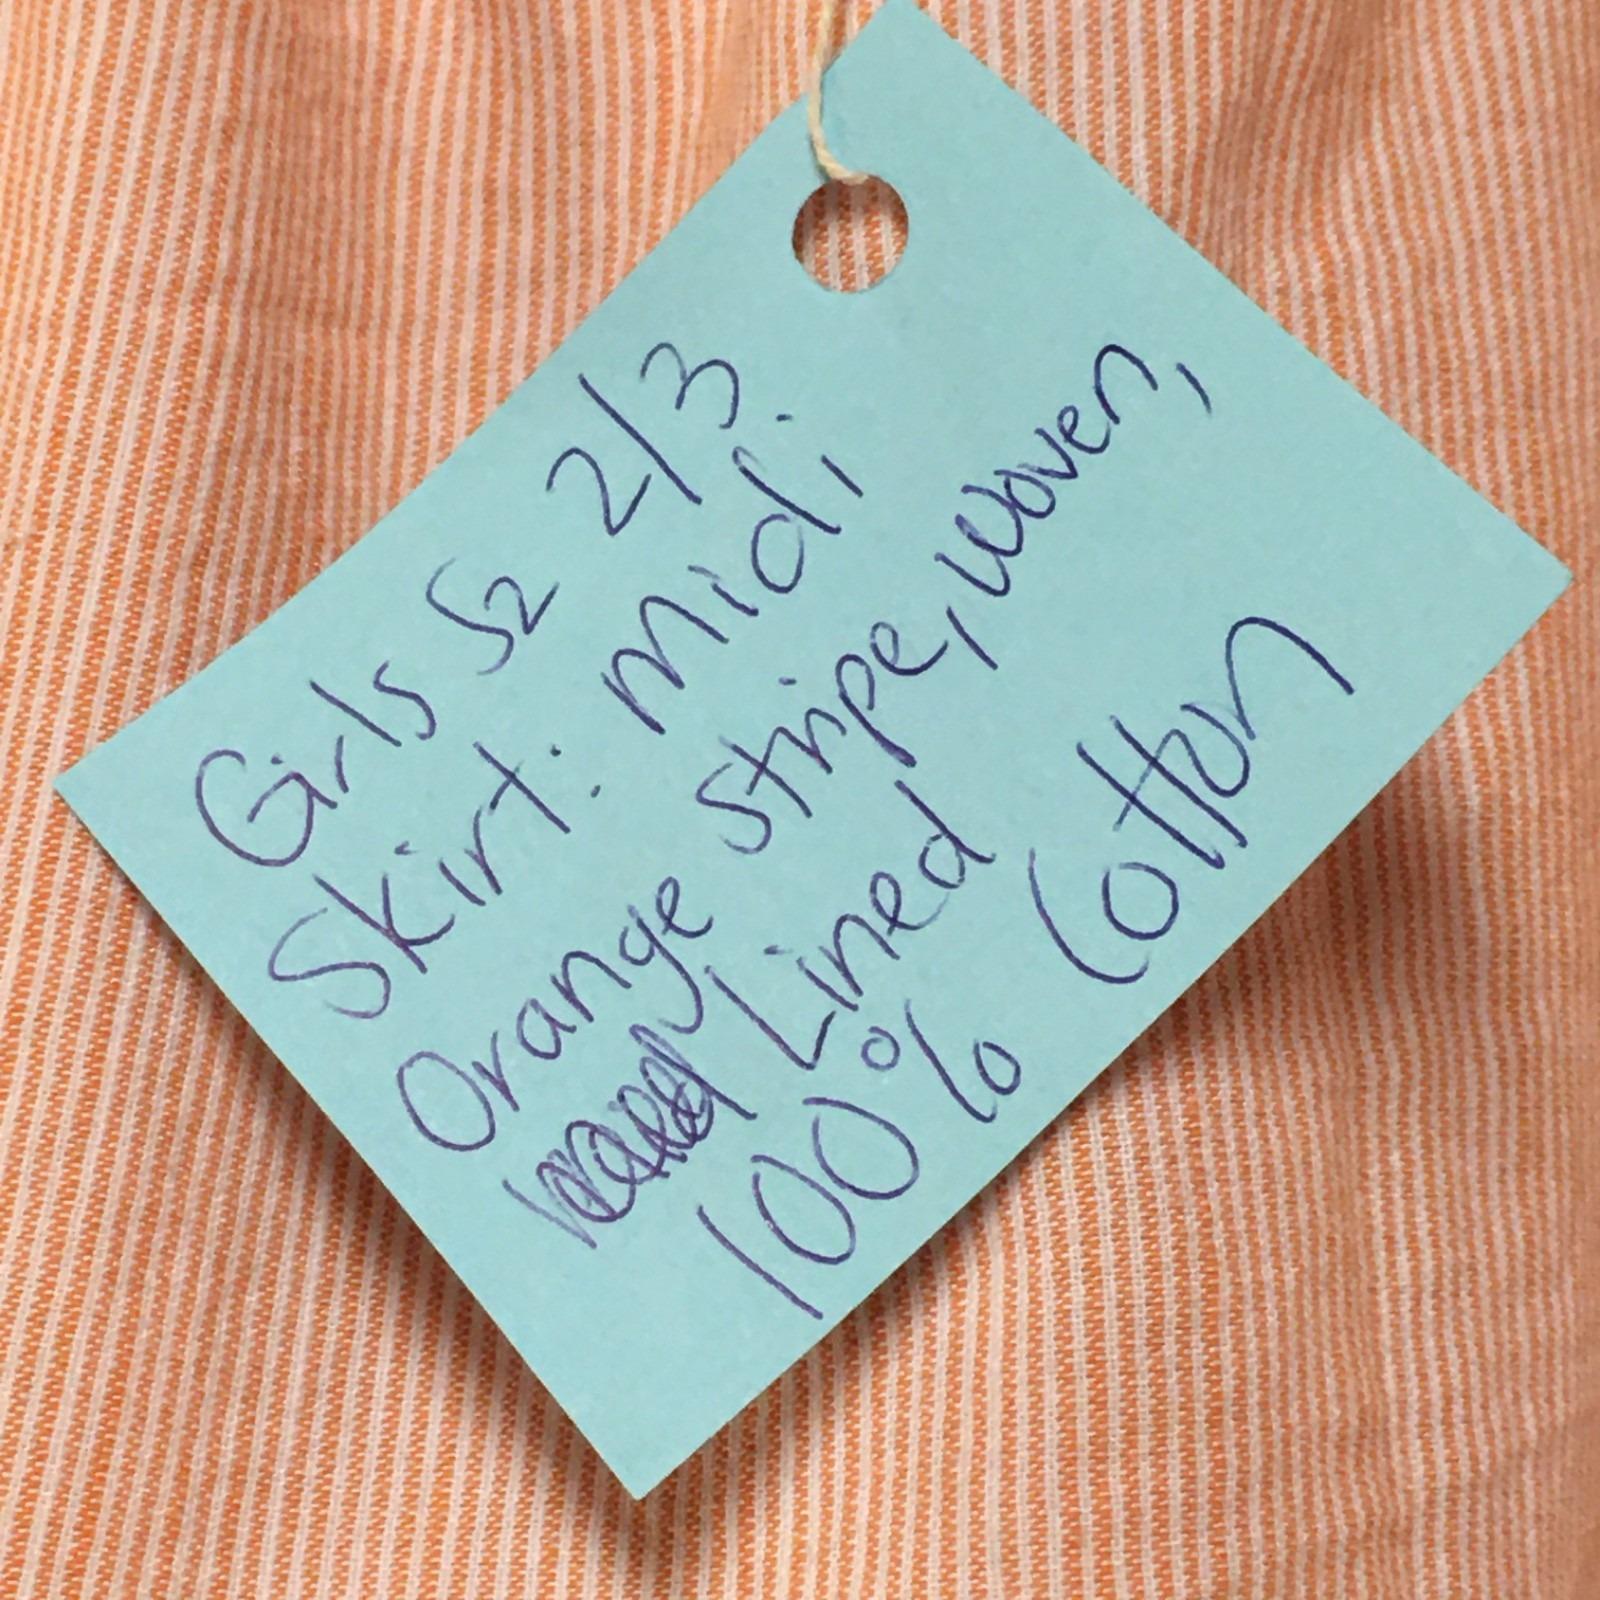 Girls Sz 2/3
Skirt: Midi
Orange stripe, woven,
Lined
100% Cotton